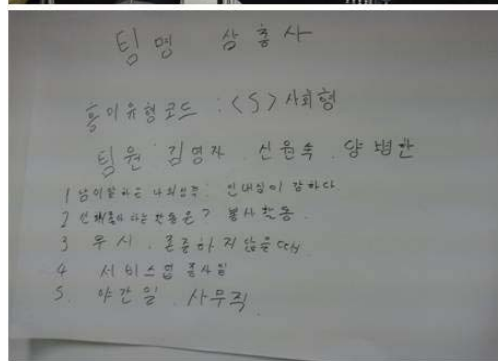 팀명 삼총사
흥미유형코드 : <S> 사회형
팀원 김영자 . 신원숙 . 양병한
1 남이말하는 나의성격. 인내심이 강하다
2 하는 활동은? 봉사활동.
3 무시 . 존중하지않을때
4 서비스업 종사일
5. 야간일 . 사무직